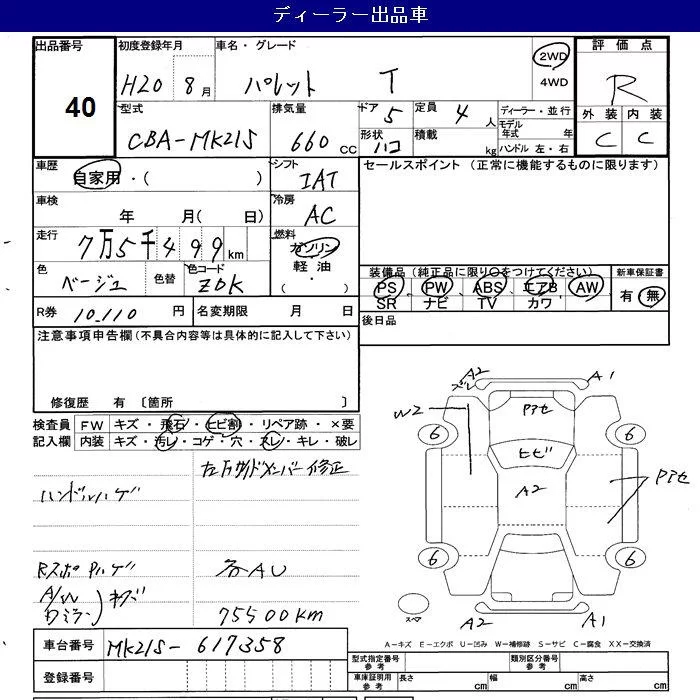 ディーラー出品車
出品番号 初度登録年月 車名・グレード 2WD 評価点
40 H20 8月 パレット T 4WD R
型式 排気量 ドア 定員 ディーラー・並行 外装 内装
CBA-MK21S 660 CC 5 4人 モデル年式 年 C C
形状 ハコ 積載 kg ハンドル 左・右
車歴 自家用・( ) シフト IAT セールスポイント (正常に機能するものに限ります)
車検 年 月( 日) 冷房 AC
走行 7万5千499km 燃料 ガソリン
軽油
・( )
色 ベージュ 色替 色コード ZDK 装備品(純正品に限り○をつけてください) 新車保証書
PS PW ABS エアB AW 有・無
SR ナビ TV カワ
R券 10,110 円 名変期限 月 日 後日品
注意事項申告欄(不具合内容等は具体的に記入して下さい)
修復歴 有 〔箇所 〕
検査員 FW キズ・飛石・ヒビ割・リペア跡・×要
記入欄 内装 キズ・汚レ・コゲ・穴・スレ・キレ・破レ
左右サイドメンバー修正
ハンドルハゲ
Rスポ Pハゲ 各AU
A/W
ドミラー キズ
75500km
A2 A1
ズレ
W2 Pアセ
6 6
ヒビ
A2 Pアセ
6 6
スペア A2 A1
A-キズ E-エクボ U-凹み W-補修跡 S-サビ C-腐食 XX-交換済
車台番号 MK21S-617358
型式指定番号 参考 類別区分番号 参考
登録番号 車庫証明用 参考 長さ cm 幅 cm 高さ cm